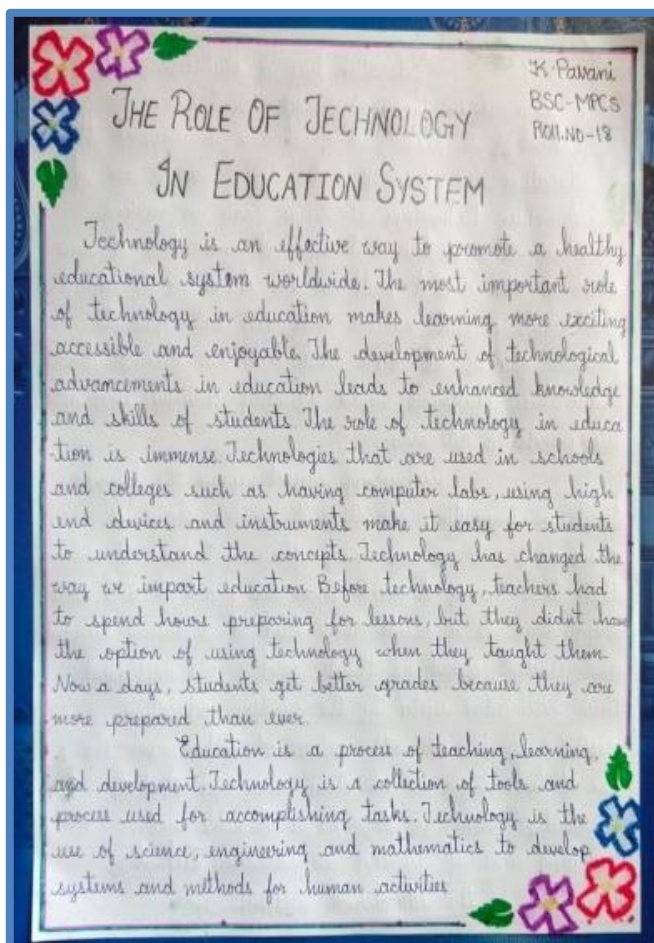 K. Pavani
BSC-MPCS
Roll.No-18
THE ROLE OF TECHNOLOGY
IN EDUCATION SYSTEM
Technology is an effective way to promote a healthy
educational system worldwide. The most important role
of technology in education makes learning more exciting
accessible and enjoyable. The development of technological
advancements in education leads to enhanced knowledge
and skills of students. The role of technology in educa
tion is immense. Technologies that are used in schools
and colleges such as having computer labs, using high
end devices and instruments make it easy for students
to understand the concepts. Technology has changed the
way we impart education Before technology, teachers had
to spend hours preparing for lessons, but they didn't have
the option of using technology when they taught them.
Now a days, students get better grades because they are
more prepared than ever.
Education is a process of teaching, learning,
and development. Technology is a collection of tools and
process used for accomplishing tasks. Technology is the
use of science, engineering and mathematics to develop
systems and methods for human activities